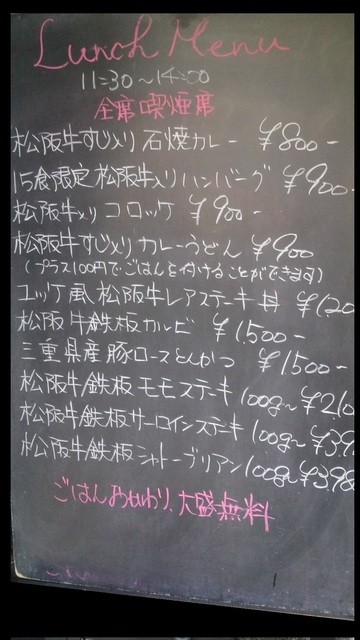 Lunch Menu
11:30～14:00
全席喫煙席
松阪牛すじ入り石焼カレー ￥800-
15食限定松阪牛入りハンバーグ ￥900
松阪牛入りコロッケ ￥900-
松阪牛すじ入りカレーうどん ￥900
(プラス100円でごはんを付けることができます)
ユッケ風松阪牛レアステーキ丼 ￥1,20
松阪牛鉄板カルビ ￥1,500-
三重県産豚ロースとんかつ ￥1500-
松阪牛鉄板モモステーキ 100g～￥210
松阪牛鉄板サーロインステーキ 100g～￥3,9
松阪牛鉄板シャトーブリアン 100g～￥3,98
ごはんおかわり、大盛無料